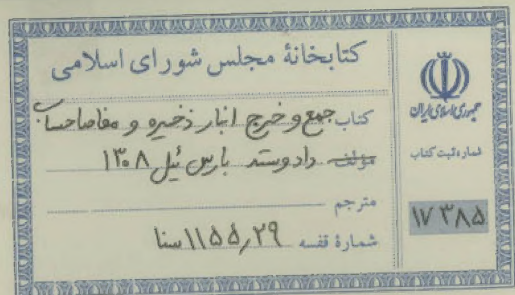 کتابخانهٔ مجلس شورای اسلامی
کتاب جمع و خرج انبار ذخیره و مفاصاحساب
مؤلف دادوستد بارس ئیل ۱۳۰۸
مترجم
شمارهٔ قفسه ۱۱۵۵٫۲۹ سنا
جمهوری اسلامی ایران
شماره ثبت کتاب
۱۷۳۸۵